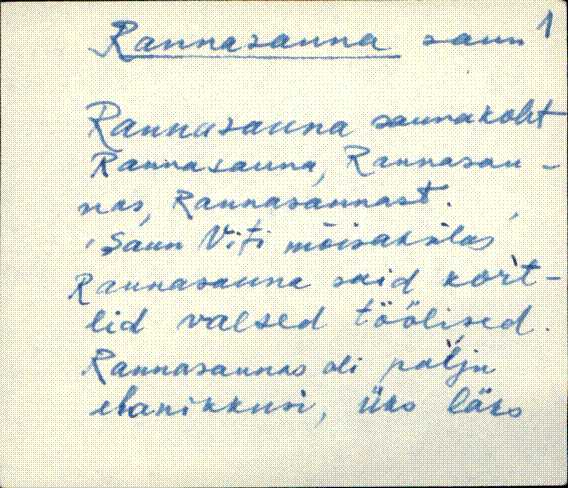 Rannasauna saun 1
Rannasauna saunakoht
Rannasauna, Rannasau-
nas, Rannasaunast.
Saun Viti mõisakülas,
Rannasauna said kort-
lid valsed töölised.
Rannasaunas oli palju
elanikkusi, üks läks